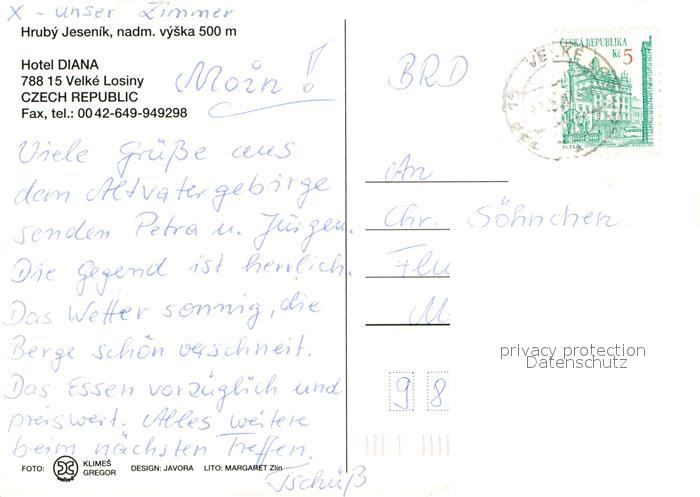 X - unser Zimmer
Hrubý Jeseník, nadm. výška 500 m
Hotel DIANA
788 15 Velké Losiny
CZECH REPUBLIC
Fax, tel.: 0042-649-949298
Moin!
Viele Grüße aus
dem Altvatergebirge
senden Petra u. Jürgen.
Die Gegend ist herrlich.
Das Wetter sonnig, die
Berge schön verschneit.
Das Essen vorzüglich und
preiswert. Alles weitere
beim nächsten Treffen.
Tschüß
FOTO: KLIMEŠ GREGOR DESIGN: JAVORA LITO: MARGARET Zlín
BRD
ČESKÁ REPUBLIKA
Kč 5
PLZEŇ
VELKÉ
An
Chr. Söhnchen
Flu
M
98
privacy protection
Datenschutz